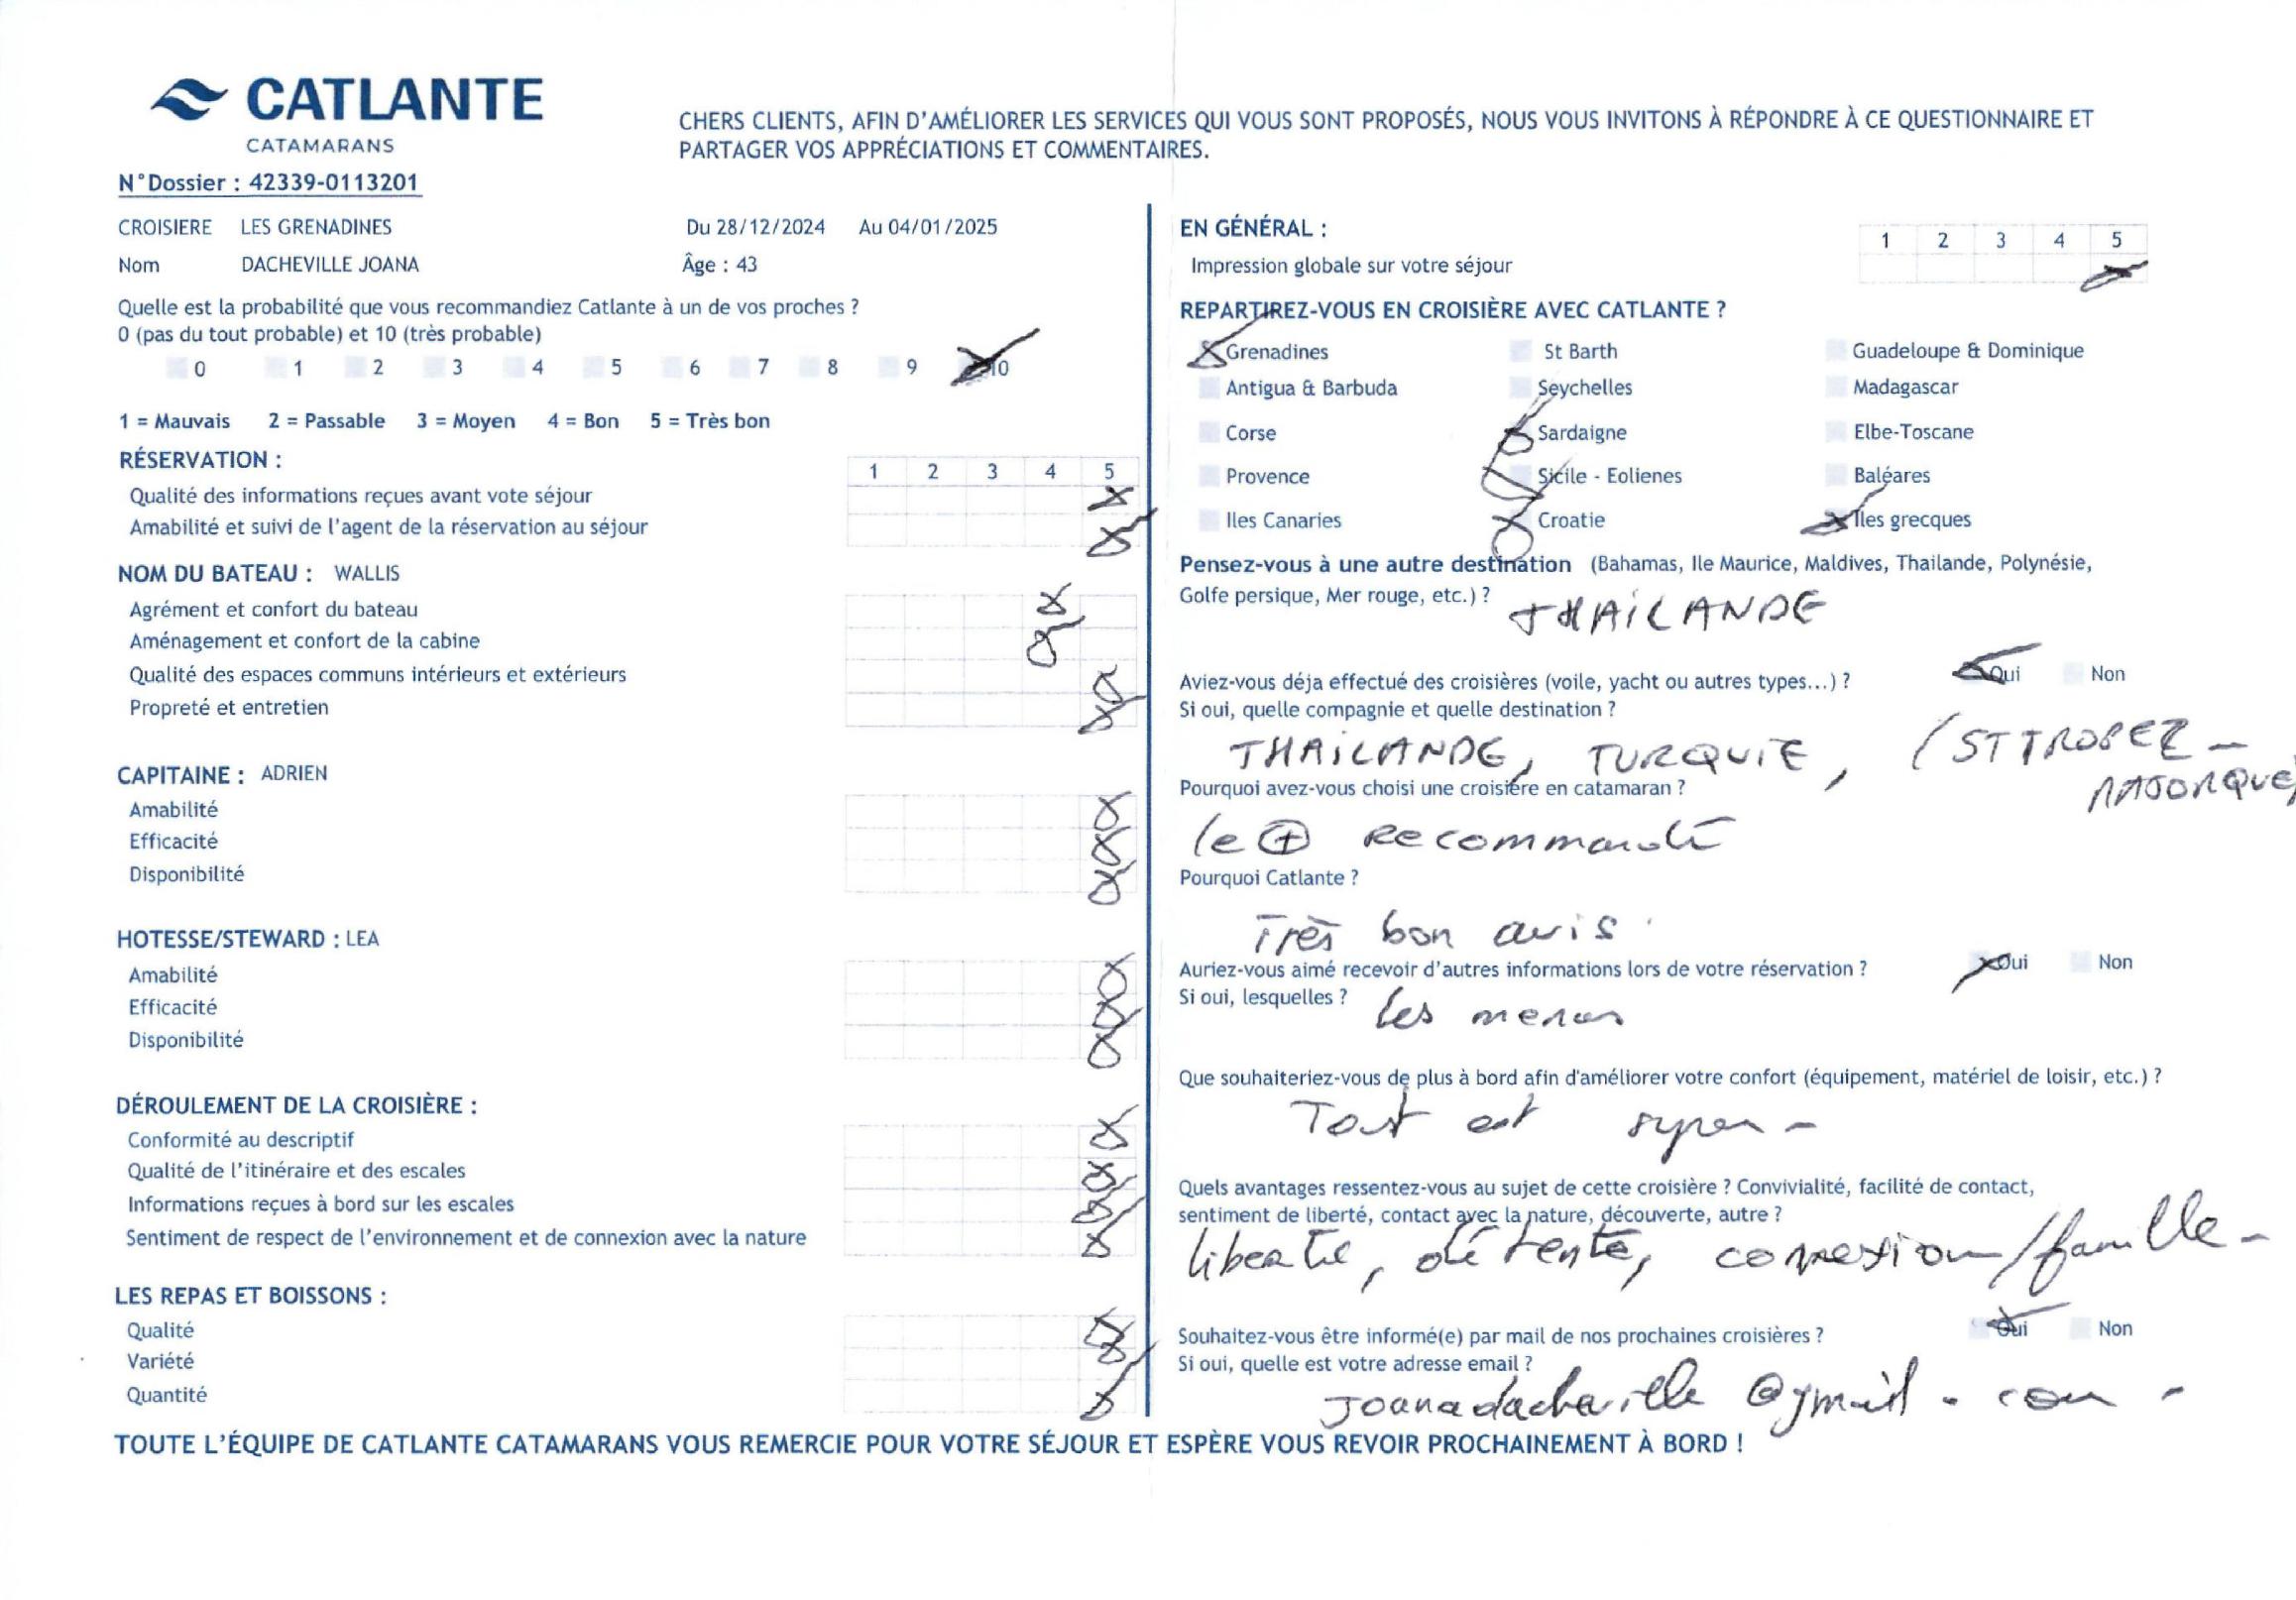 CATLANTE
CATAMARANS
CHERS CLIENTS, AFIN D'AMÉLIORER LES SERVICES QUI VOUS SONT PROPOSÉS, NOUS VOUS INVITONS À RÉPONDRE À CE QUESTIONNAIRE ET
PARTAGER VOS APPRÉCIATIONS ET COMMENTAIRES.
N°Dossier : 42339-0113201
CROISIERE LES GRENADINES Du 28/12/2024 Au 04/01/2025
Nom DACHEVILLE JOANA Âge : 43
Quelle est la probabilité que vous recommandiez Catlante à un de vos proches ?
0 (pas du tout probable) et 10 (très probable)
0 1 2 3 4 5 6 7 8 9 10
1 = Mauvais 2 = Passable 3 = Moyen 4 = Bon 5 = Très bon
RÉSERVATION :
1 2 3 4 5
Qualité des informations reçues avant vote séjour
Amabilité et suivi de l'agent de la réservation au séjour
NOM DU BATEAU : WALLIS
Agrément et confort du bateau
Aménagement et confort de la cabine
Qualité des espaces communs intérieurs et extérieurs
Propreté et entretien
CAPITAINE : ADRIEN
Amabilité
Efficacité
Disponibilité
HOTESSE/STEWARD : LEA
Amabilité
Efficacité
Disponibilité
DÉROULEMENT DE LA CROISIÈRE :
Conformité au descriptif
Qualité de l'itinéraire et des escales
Informations reçues à bord sur les escales
Sentiment de respect de l'environnement et de connexion avec la nature
LES REPAS ET BOISSONS :
Qualité
Variété
Quantité
EN GÉNÉRAL :
1 2 3 4 5
Impression globale sur votre séjour
REPARTIREZ-VOUS EN CROISIÈRE AVEC CATLANTE ?
Grenadines St Barth Guadeloupe & Dominique
Antigua & Barbuda Seychelles Madagascar
Corse Sardaigne Elbe-Toscane
Provence Sicile - Eolienes Baléares
Iles Canaries Croatie Iles grecques
Pensez-vous à une autre destination (Bahamas, Ile Maurice, Maldives, Thailande, Polynésie,
Golfe persique, Mer rouge, etc.) ? THAÏLANDE
Aviez-vous déja effectué des croisières (voile, yacht ou autres types...) ? Oui Non
Si oui, quelle compagnie et quelle destination ?
THAÏLANDE, TURQUIE, (ST TROPEZ -
MAJORQUE)
Pourquoi avez-vous choisi une croisière en catamaran ?
le + recommandé
Pourquoi Catlante ?
Très bon avis
Auriez-vous aimé recevoir d'autres informations lors de votre réservation ? Oui Non
Si oui, lesquelles ? les menus
Que souhaiteriez-vous de plus à bord afin d'améliorer votre confort (équipement, matériel de loisir, etc.) ?
Tout est super -
Quels avantages ressentez-vous au sujet de cette croisière ? Convivialité, facilité de contact,
sentiment de liberté, contact avec la nature, découverte, autre ?
liberté, détente, connexion/famille -
Souhaitez-vous être informé(e) par mail de nos prochaines croisières ? Oui Non
Si oui, quelle est votre adresse email ?
Joanadacheville@gmail.com -
TOUTE L'ÉQUIPE DE CATLANTE CATAMARANS VOUS REMERCIE POUR VOTRE SÉJOUR ET ESPÈRE VOUS REVOIR PROCHAINEMENT À BORD !